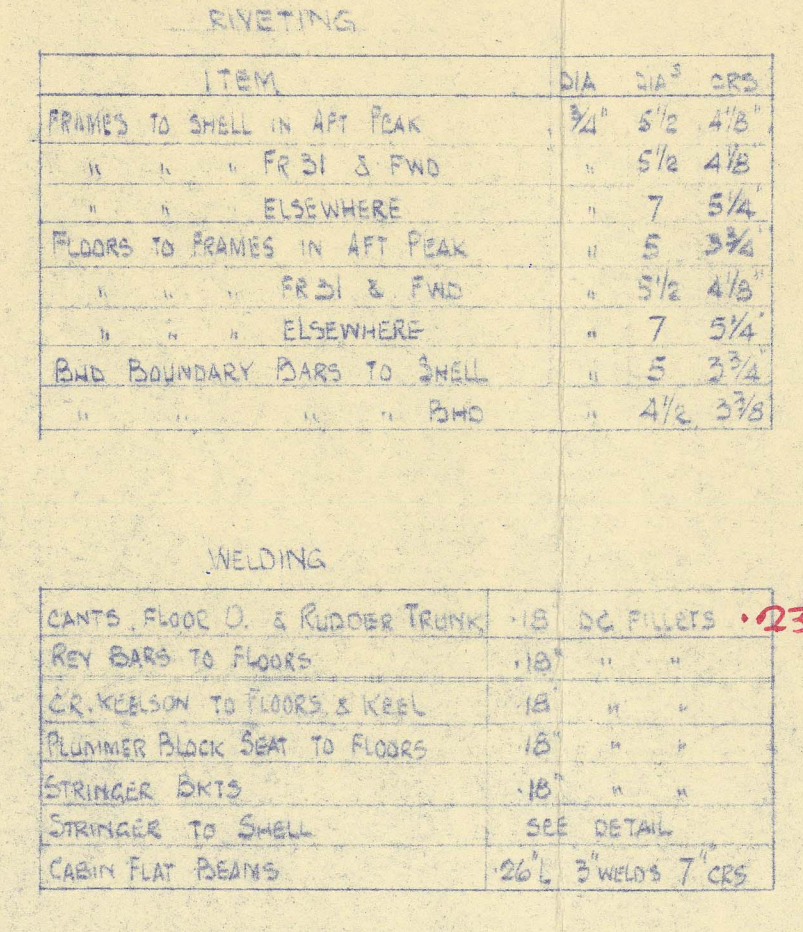 RIVETING
ITEM DIA DIAS CRS
FRAMES TO SHELL IN AFT PEAK 3/4" 5 1/2 4 1/8"
" " " FR 31 & FWD " 5 1/2 4 1/8"
" " " ELSEWHERE " 7 5 1/4"
FLOORS TO FRAMES IN AFT PEAK " 5 3 3/4"
" " " FR 31 & FWD " 5 1/2 4 1/8"
" " " ELSEWHERE " 7 5 1/4"
BHD BOUNDARY BARS TO SHELL " 5 3 3/4"
" " " " BHD " 4 1/2 3 3/8
WELDING
CANTS, FLOOR O. & RUDDER TRUNK ·18" DC FILLETS ·23
REV BARS TO FLOORS ·18" " "
CR. KEELSON TO FLOORS & KEEL ·18" " "
PLUMMER BLOCK SEAT TO FLOORS ·18" " "
STRINGER BKTS ·18" " "
STRINGER TO SHELL SEE DETAIL
CABIN FLAT BEAMS ·26"L 3" WELDS 7" CRS